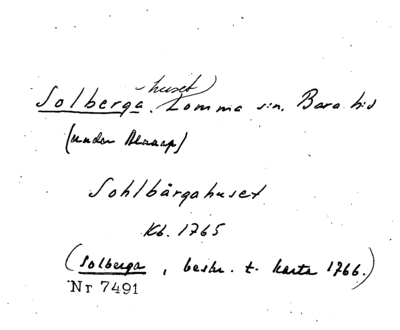 Solberga (huset) Lomma sn, Bara hd
(under Alnarp)
Sohlbärgahuset
Kb. 1765
(Solberga, beskr. t. karta 1766.)
Nr 7491